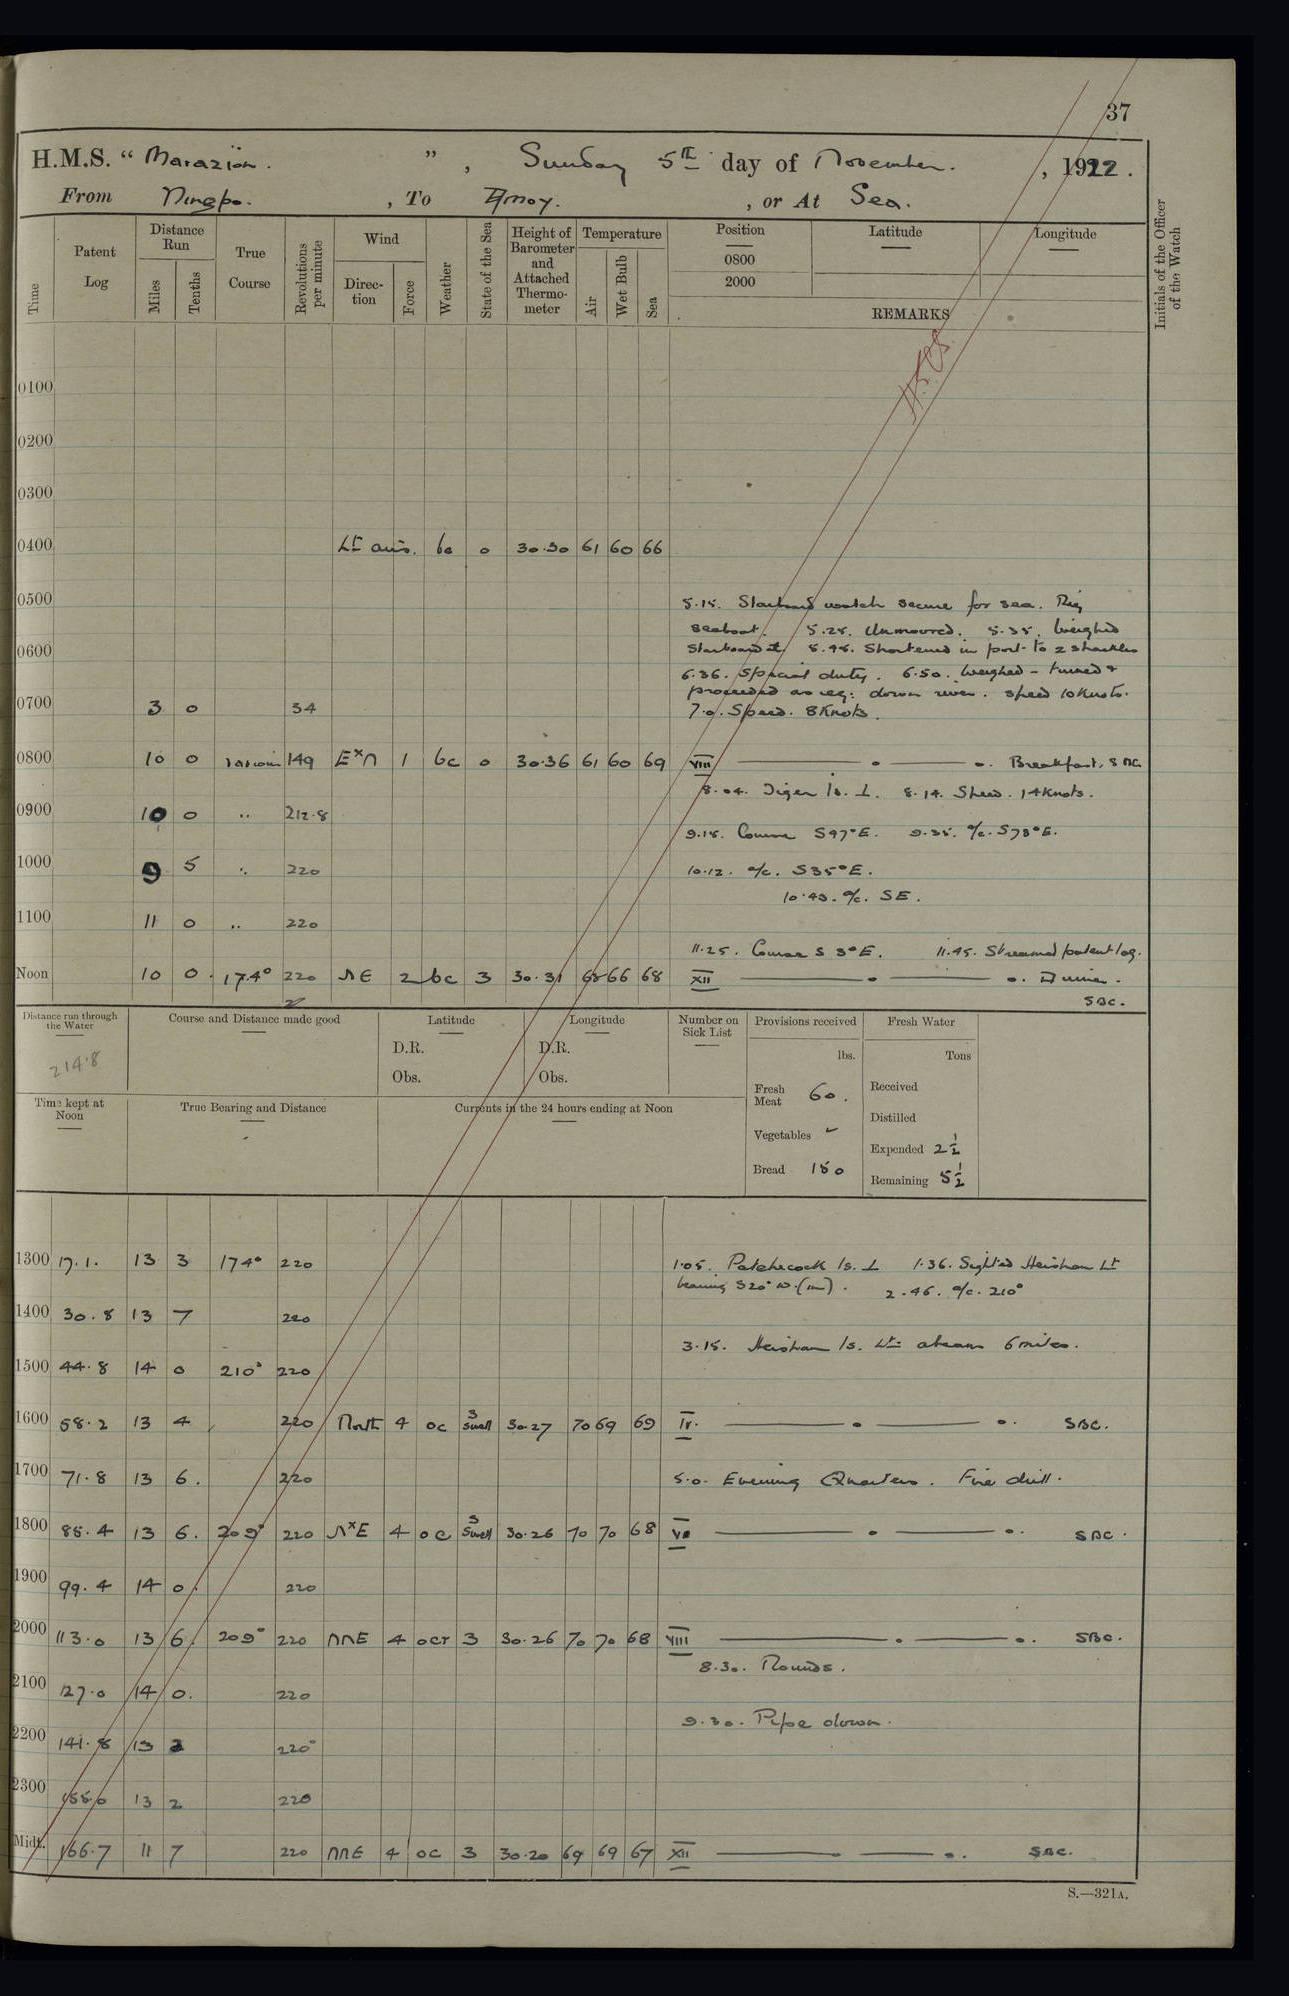 37
H.M.S. “ Marazion. ” , Sunday 5th day of November. , 1922.
From Ningpo. , To Amoy. , or At Sea.
Time Patent Log Distance Run Miles Tenths True Course Revolutions per minute Wind Direction Force Weather State of the Sea Height of Barometer and Attached Thermometer Temperature Air Wet Bulb Sea Position 0800 2000 Latitude Longitude
REMARKS
Initials of the Officer of the Watch
0100
0200
0300
0400 Lt airs. bc 0 30.30 61 60 66
0500
5.15. Starboard watch secure for sea. Rig
seaboat. 5.25. Unmoored. 5.35. Weighed
0600 Starboard 5.45. Shortened in port to 2 shackles
6.36. Special duty. 6.50. Weighed - turned &
proceeded as req: down river. Speed 10 Knots.
0700 3 0 34 7.0. Speed. 8 Knots.
0800 10 0 various 149 ExN 1 bc 0 30.36 61 60 69 VIII Breakfast. SBC.
8.04. Tiger Is. ⊥. 8.14. Speed. 14 Knots.
0900 10 0 " 212.8
9.15. Course S47°E. 9.35. a/c. S73°E.
1000 9 5 " 220 10.12. a/c. S35°E.
10.43. a/c. SE.
1100 11 0 " 220
11.25. Course S 3°E. 11.45. Streamed patent log.
Noon 10 0 174° 220 NE 2 bc 3 30.31 68 66 68 XII Dinner.
SBC.
Distance run through the Water 214.8
Course and Distance made good
Latitude D.R. Obs.
Longitude D.R. Obs.
Number on Sick List
Provisions received lbs.
Fresh Meat 60.
Vegetables
Bread 150
Fresh Water Tons
Received
Distilled
Expended 2½
Remaining 5½
Time kept at Noon
True Bearing and Distance
Currents in the 24 hours ending at Noon
1300 17.1. 13 3 174° 220 1.05. Patahecock Is. ⊥ 1.36. Sighted Heishan Lt
bearing S20°W. 2.46. a/c. 210°
1400 30.8 13 7 220
3.15. Heishan Is. Lt abeam 6 miles.
1500 44.8 14 0 210° 220
1600 58.2 13 4 220 North 4 oc 3 swell 30.27 70 69 69 IV. SBC.
1700 71.8 13 6. 220 5.0. Evening Quarters. Fire drill.
1800 85.4 13 6. 209° 220 NxE 4 oc 3 Swell 30.26 70 70 68 VI SBC.
1900 99.4 14 0. 220
2000 113.0 13 6. 209° 220 NNE 4 ocr 3 30.26 70 70 68 VIII SBC.
8.30. Rounds.
2100 127.0 14 0. 220
9.30. Pipe down.
2200 141.8 13 220
2300 155.0 13 2 220
Midt. 166.7 11 7 220 NNE 4 oc 3 30.20 69 69 67 XII SBC.
S.—321A.